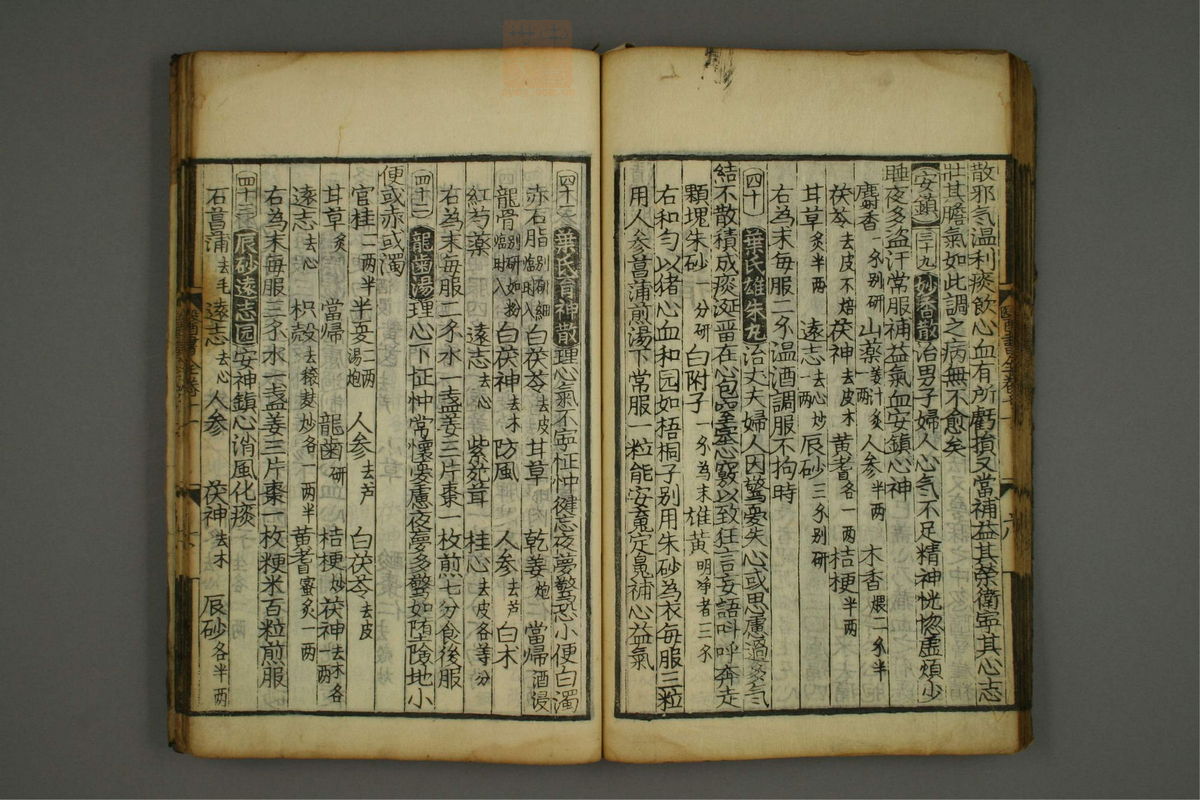 散邪气温利痰飲心血有所虧損又當補益其榮衛寧其心志
壯其膽氣如此調之病無不愈矣
安鎮 三十九 妙香散 治男子婦人心气不足精神恍惚虛煩少
睡夜多盗汗常服補益氣血安鎮心神
麝香一分别研 山藥姜汁炙一两 人参半两 木香煨二分半
茯苓去皮不焙 茯神去皮木 黄耆各一两 桔梗半两
甘草炙半两 遠志去心炒一两 辰砂三分别研
右為末每服二分温酒調服不拘時
四十 葉氏雄朱丸 治丈夫婦人因驚憂失心或思慮過多气
結不散積成痰涎畱在心包窒塞心竅以致狂言妄語叫呼奔走
顆塊朱砂一分研 白附子一分為末 雄黄明净者三分
右和勻以猪心血和园如梧桐子别用朱砂為衣每服三粒
用人参菖蒲煎湯下常服一粒能安魂定魄補心益氣
四十一 葉氏育神散 理心氣不寧怔忡健忘夜夢驚恐小便白濁
赤石脂别研細臨時入 白茯苓去皮 甘草 乾姜炮 當帰酒浸
龍骨别研如粉臨時入 白茯神去木 防風 人参去芦 白术
紅芍藥 遠志去心 紫菀茸 桂心去皮各等分
右為末每服二分水一盞姜三片棗一枚煎七分食後服
四十二 龍歯湯 理心下怔忡常懷憂慮夜夢多驚如堕險地小
便或赤或濁
官桂二两半 半夏二两湯炮 人参去芦 白茯苓去皮
甘草炙 當帰 龍歯研 桔梗炒 茯神去木各一两
遠志去心 枳殼去穰麸炒各一两半 黄耆蜜炙一两
右為末每服三分水一盞姜三片棗一枚粳米百粒煎服
四十三 辰砂遠志园 安神鎮心消風化痰
石菖蒲去毛 遠志去心 人参 茯神去木 辰砂各半两